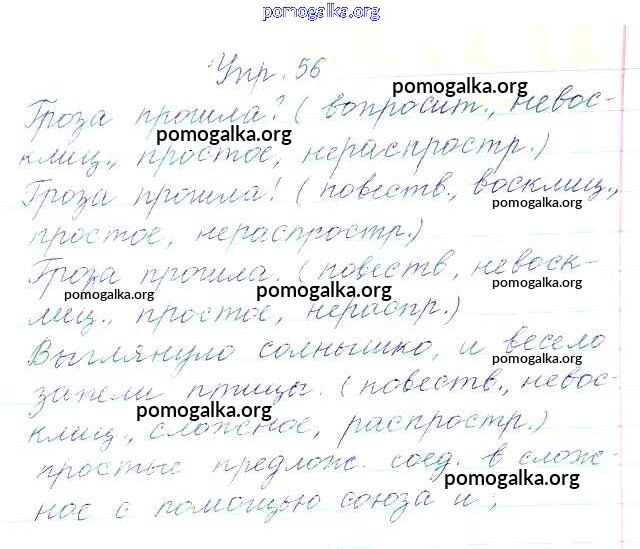 pomogalka.org
Упр. 56
pomogalka.org
Гроза прошла? (вопросит., невос-
pomogalka.org
клиц., простое, нераспростр.)
Гроза прошла! (повеств., восклиц.,
pomogalka.org
простое, нераспростр.)
Гроза прошла. (повеств, невоск-
pomogalka.org pomogalka.org pomogalka.org
лиц., простое, нераспр.)
Выглянуло солнышко, и весело
pomogalka.org
запели птицы. (повеств., невос-
pomogalka.org
клиц., сложное, распростр.)
простые предлож. соед. в слож-
pomogalka.org
ное с помощью союза и;